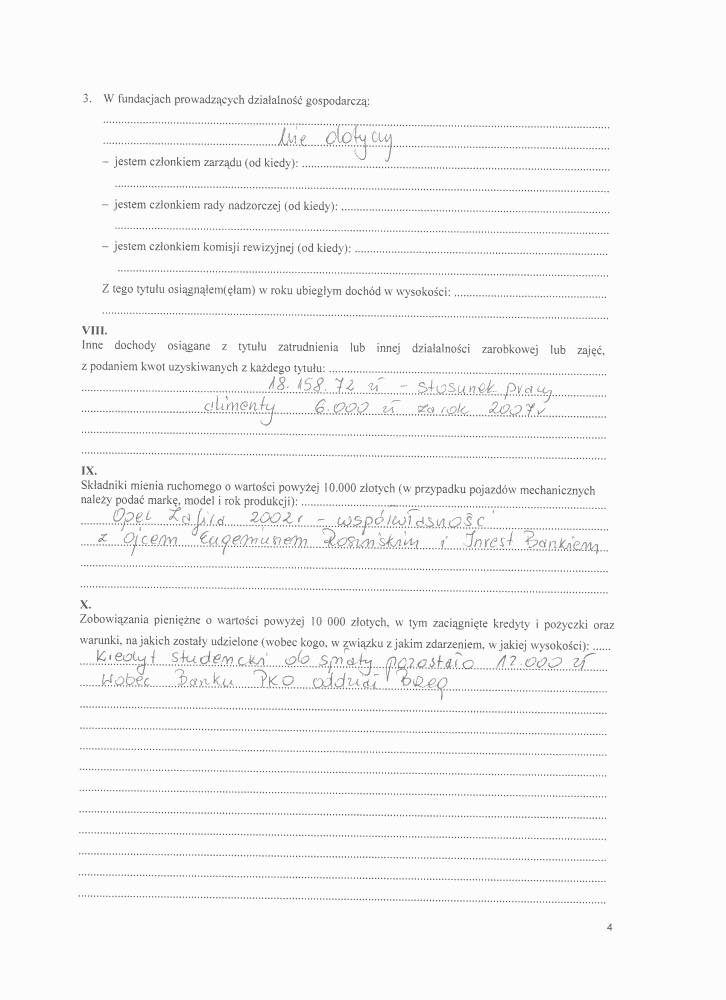 3. W fundacjach prowadzących działalność gospodarczą:
nie dotyczy
– jestem członkiem zarządu (od kiedy):
– jestem członkiem rady nadzorczej (od kiedy):
– jestem członkiem komisji rewizyjnej (od kiedy):
Z tego tytułu osiągnąłem(ęłam) w roku ubiegłym dochód w wysokości:
VIII.
Inne dochody osiągane z tytułu zatrudnienia lub innej działalności zarobkowej lub zajęć,
z podaniem kwot uzyskiwanych z każdego tytułu:
18.158.72 zł – stosunek pracy
alimenty 6.000 zł za rok 2007r
IX.
Składniki mienia ruchomego o wartości powyżej 10.000 złotych (w przypadku pojazdów mechanicznych
należy podać markę, model i rok produkcji):
Opel Zafira 2002r – współwłasność
z ojcem Eugeniuszem Rosińskim i Invest Bankiem
X.
Zobowiązania pieniężne o wartości powyżej 10 000 złotych, w tym zaciągnięte kredyty i pożyczki oraz
warunki, na jakich zostały udzielone (wobec kogo, w związku z jakim zdarzeniem, w jakiej wysokości):
Kredyt studencki do spłaty pozostało 12.000 zł
wobec Banku PKO oddział
4